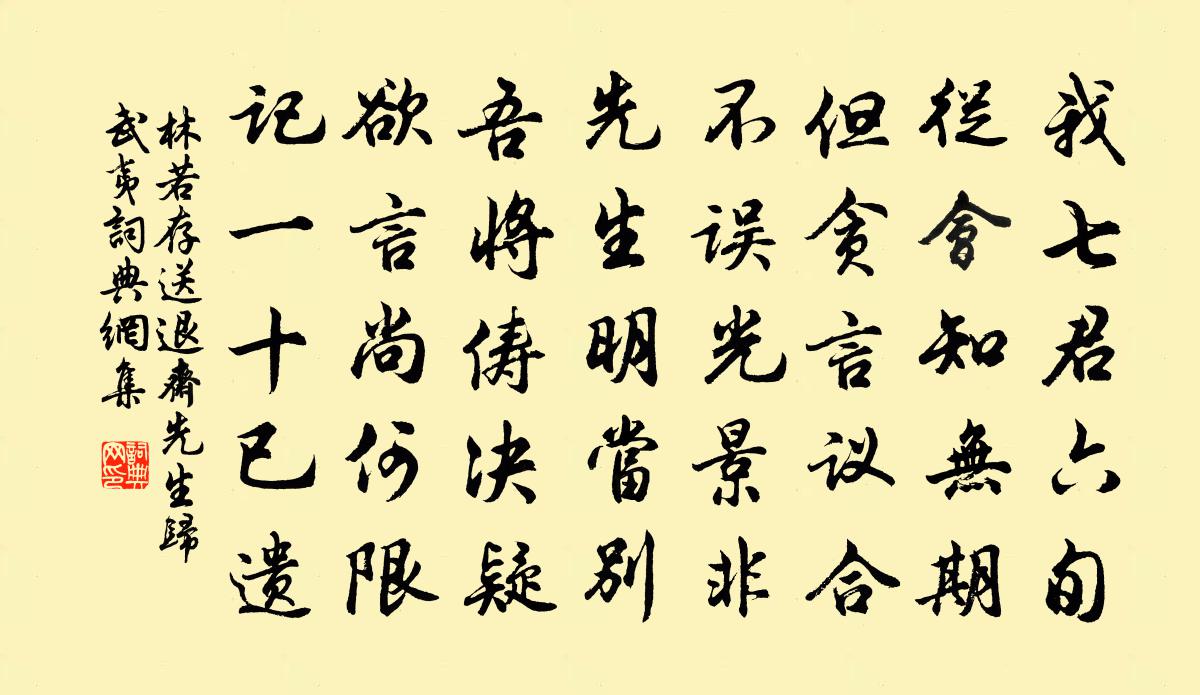 我七君六旬
從會知無期
但贪言议合
不误光景非
先生明當别
吾將俦决疑
欲言尚何限
记一十已遗
林若存送退齋先生歸
武夷詞典網集
詞典
网印